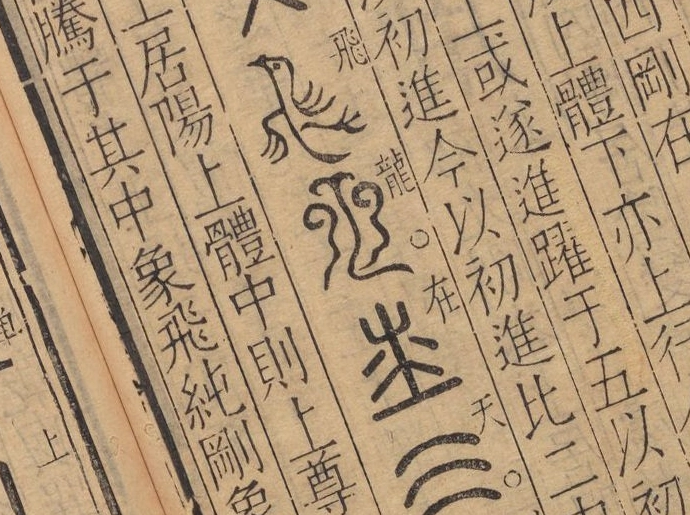 四剛在
上體下亦上往
上或遂進躍于五以初
初進今以初進比二
飛龍。在天。
上居陽上體中則上尊
騰于其中象飛純剛象
上